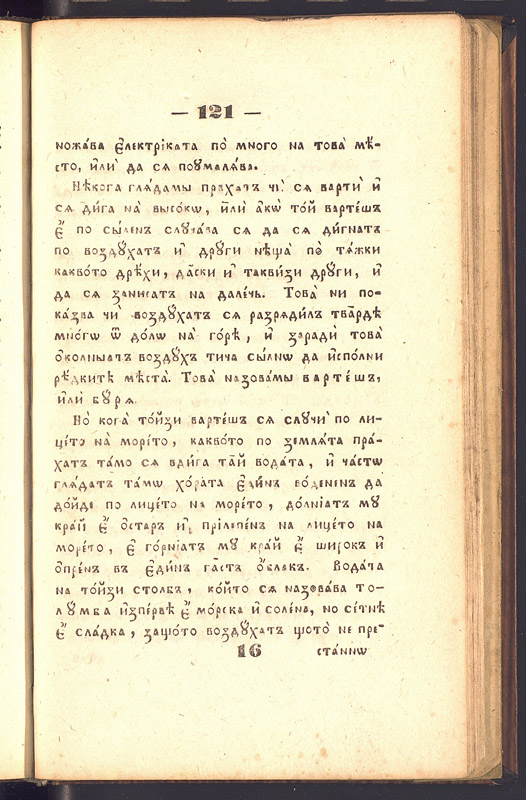 — 121 —
ножа́ва Єле́ктріката по̀ много на това̀ мѣ́-
сто, и҆лѝ да ся поумаля́ва.
Нѣ́кога гля́дамы пра́хатъ чѝ ся вартѝ и҆
ся ди́га на̀ висо́кѡ, и҆лѝ а҆́кѡ то́й варте́шъ
є҆̀ по сы́ленъ случа́ва ся да ся ди́гнатъ
по воздꙋ́хатъ и҆ дрꙋги нѣща̀ по̀ тя́жки
какво́то дрѣ́хи, да́ски и҆ такви́зи дрꙋги, и҆
да ся зани́сатъ на дале́чь. Това̀ ни по-
ка́зва чѝ воздꙋ́хатъ ся разряди́лъ тва́рдѣ
мно́гѡ ѿ до́лѡ на̀ го́рѣ, и҆ зарадѝ това̀
о҆ко́лныатъ воздꙋ́хъ ти́ча сы́лнѡ да и҆спо́лни
рѣ́дките мѣста̀. Това̀ назова́вамы варте́шъ,
и҆лѝ бꙋ́ря.
Но̀ кога̀ то́йзи варте́шъ ся слꙋчѝ по ли-
це́то на̀ море́то, какво́то по земля́та пра́-
хатъ та́мо ся вди́га та́й вода́та, и҆ ча́стѡ
гля́датъ та́мѡ хо́рата є҆ди́нъ во́дененъ да
до́йде по лице́то на море́то, до́лніатъ мꙋ
кра́й є҆̀ о҆́старъ и҆ приле́пенъ на лице́то на
море́то, є҆ го́рніатъ мꙋ кра́й є҆̀ широ́къ и҆
о҆пре́нъ въ є҆ди́нъ га́стъ о҆́блакъ. Вода́та
на то́йзи столбъ, ко́йто ся назова́ва то-
лꙋ́мба и҆зпе́рвѣ є҆̀ мо́рска и҆ соле́на, но се́тнѣ
є҆̀ сла́дка, защо́то воздꙋ́хатъ що́то не пре-
16 ста́ннѡ